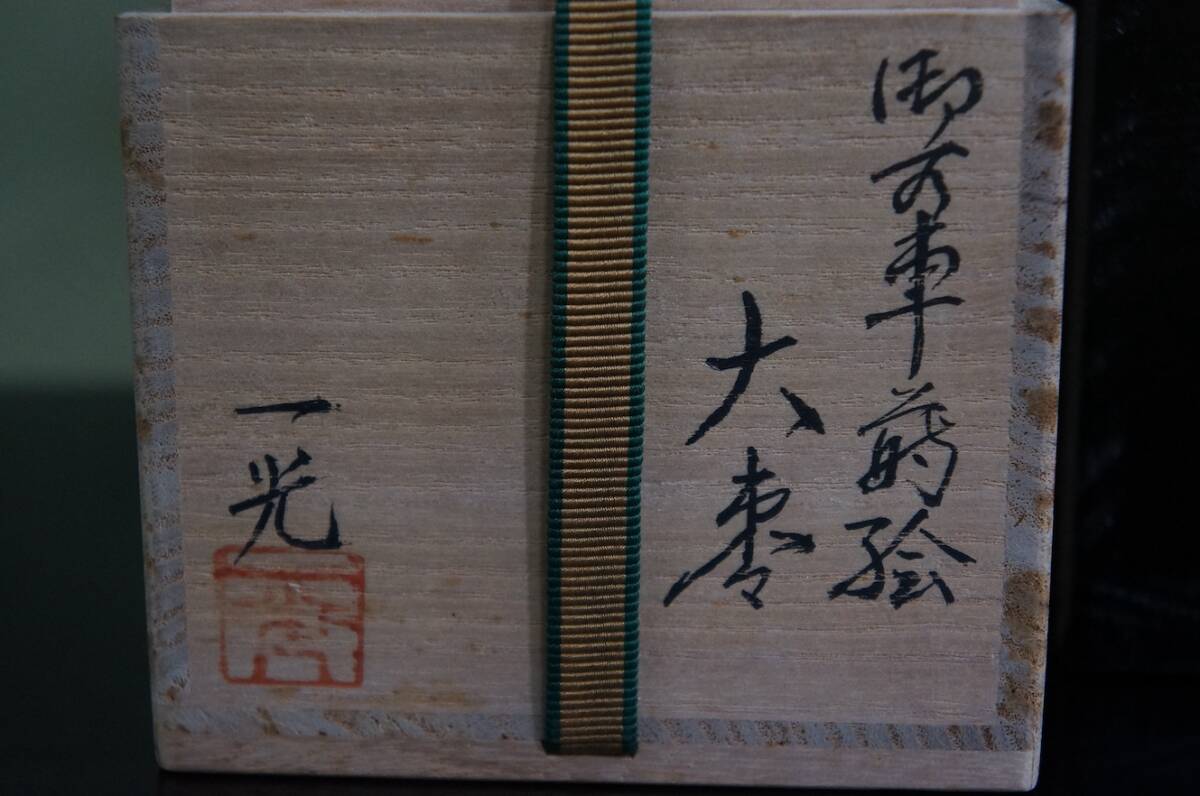 御所車蒔絵
大棗
一光